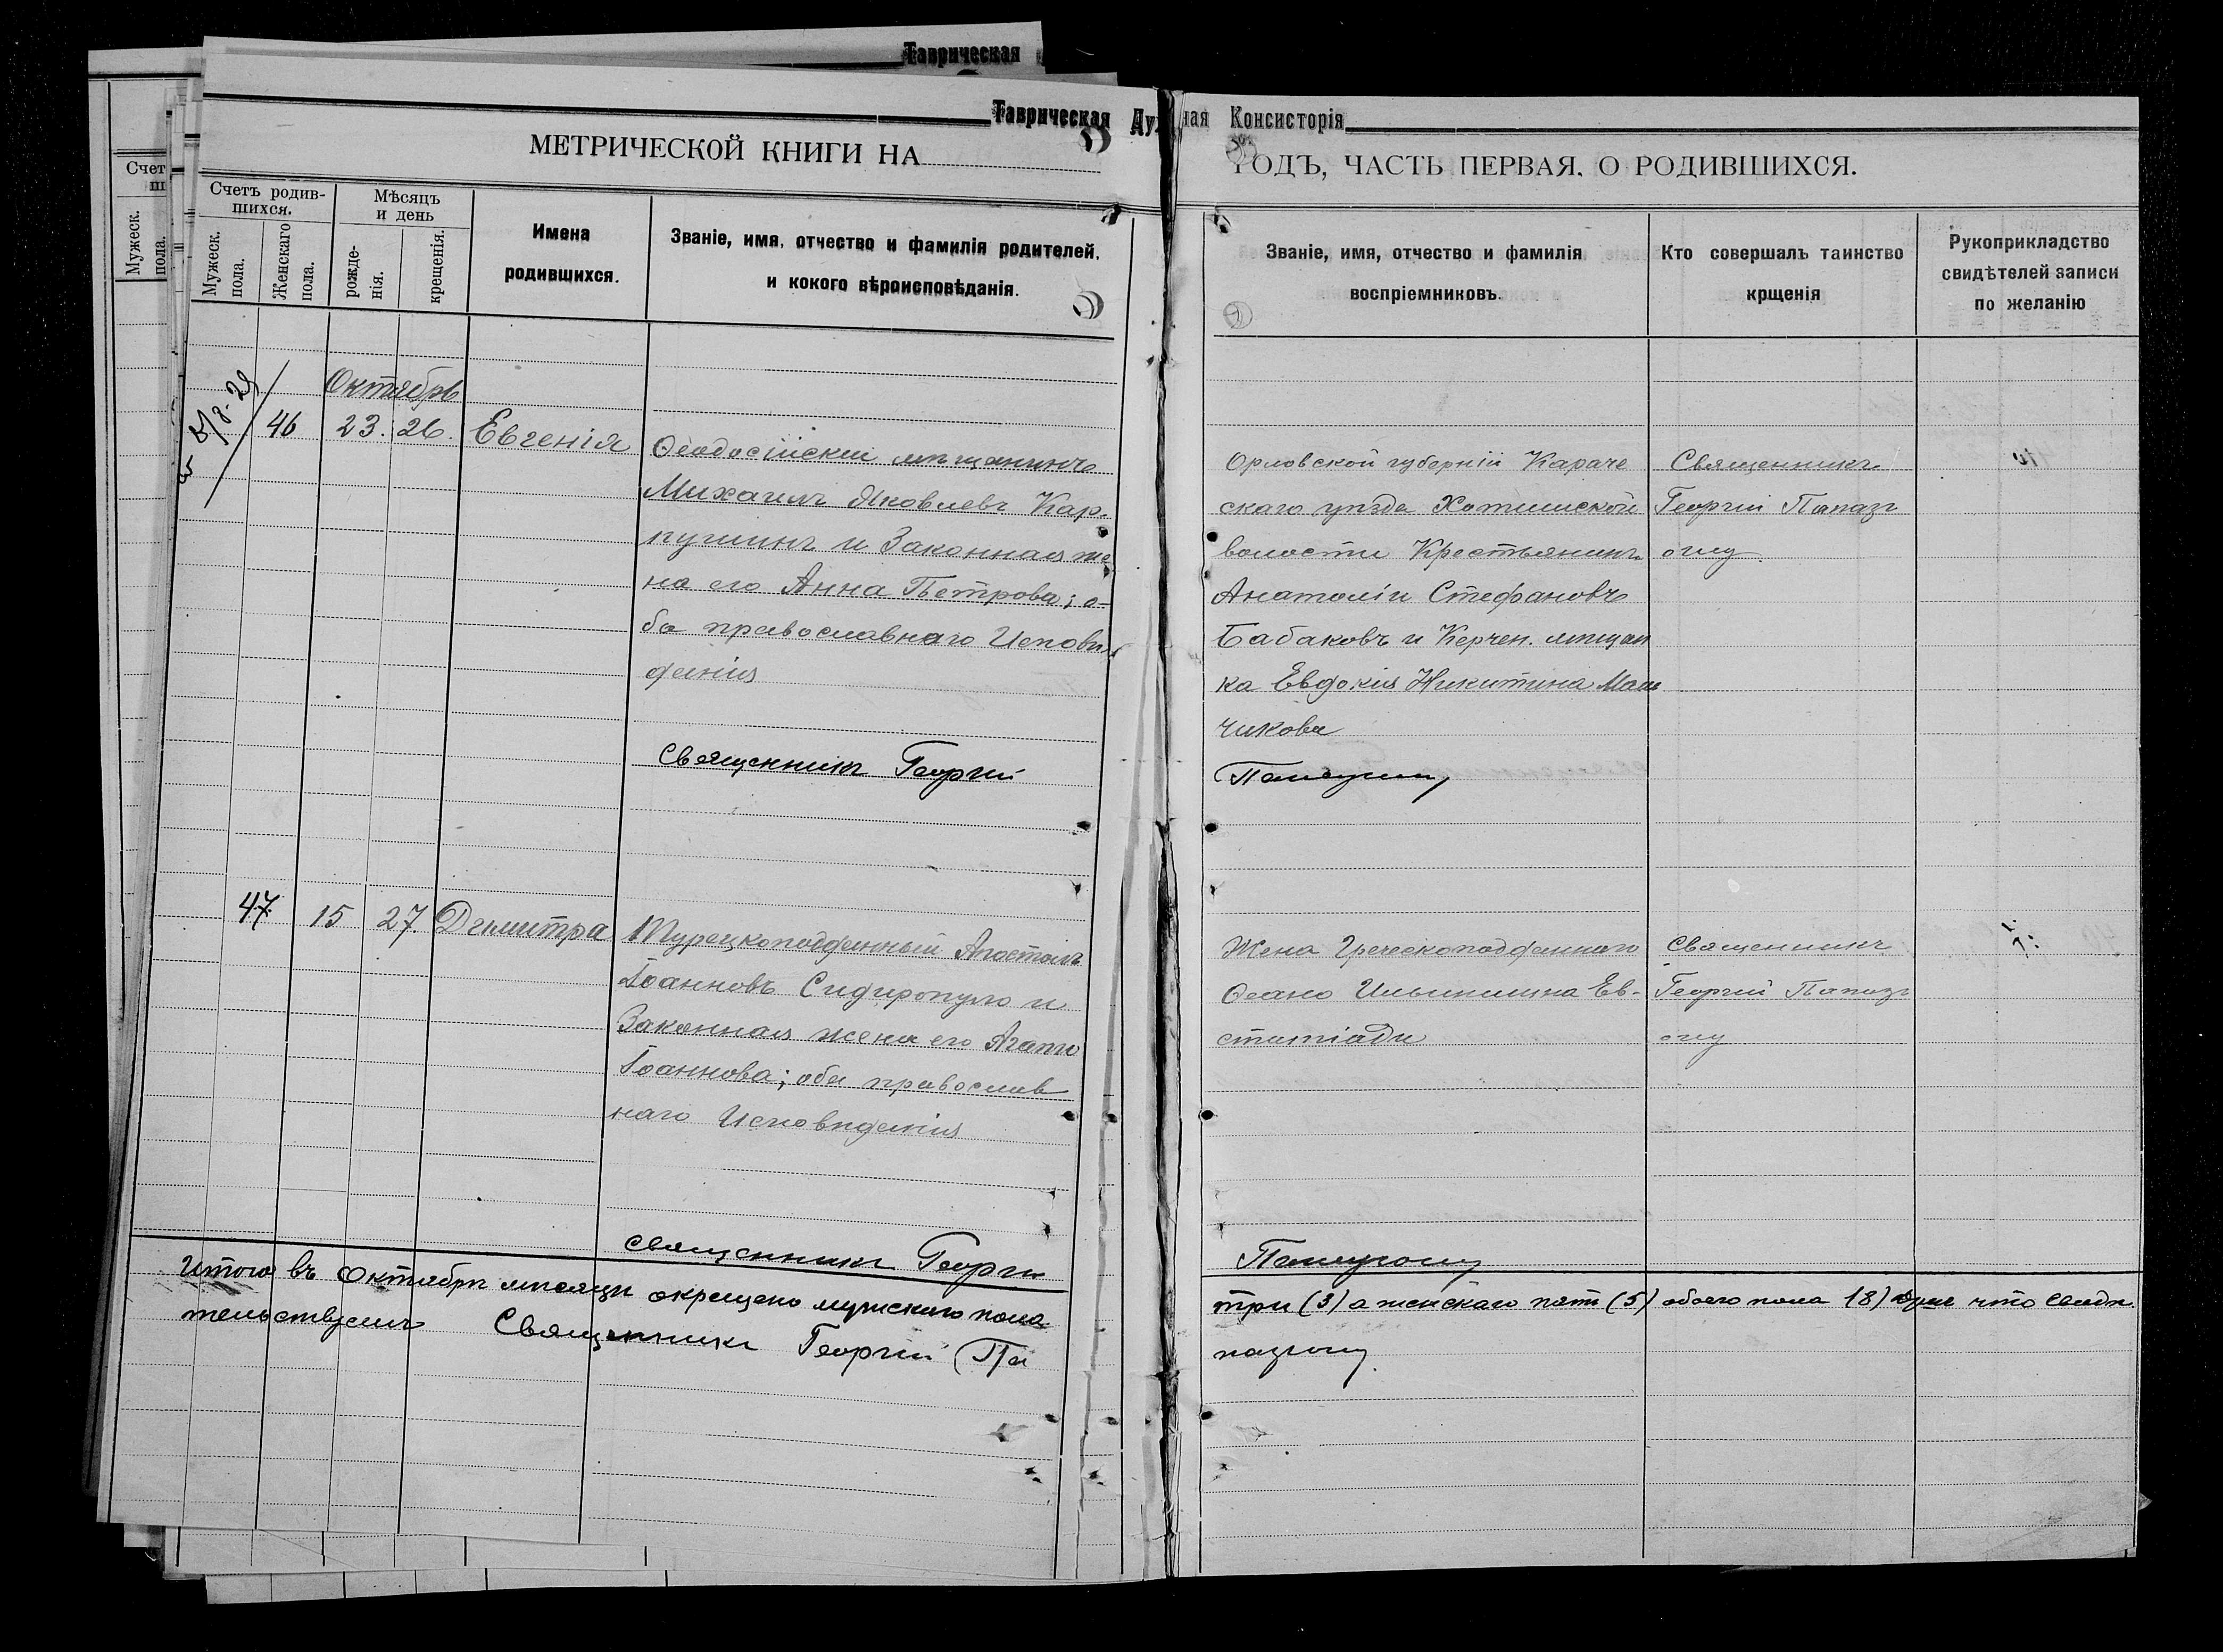 Таврическая
Таврическая Духовная Консисторія
МЕТРИЧЕСКОЙ КНИГИ НА
ГОДЪ, ЧАСТЬ ПЕРВАЯ, О РОДИВШИХСЯ.
Счетъ родив-
шихся.
Мужеск.
пола.
Женскаго
пола.
Мѣсяцъ
и день
рожде-
нія.
крещенія.
Имена
родившихся.
Званіе, имя, отчество и фамилія родителей,
и кокого вѣроисповѣданія.
Званіе, имя, отчество и фамилія
воспріемниковъ.
Кто совершалъ таинство
крщенія
Рукоприкладство
свидѣтелей записи
по желанію
Октябрь
46 23. 26. Евгенія
Ѳеодосійскій мѣщанинъ
Михаилъ Яковлевъ Кар-
пушинъ и Законная же
на его Анна Петрова; о-
ба православнаго Исповѣ
данія
Священникъ Георгій
Орловской губерніи Караче
скаго уѣзда Хотимской
волости Крестьянинъ
Анатолій Стефановъ
Бабаковъ и Керчен. мѣщан
ка Евдокія Никитина Маль
чикова
Священникъ
Георгій Папазъ
оглу
47 15 27. Димитра
Турецкоподданный Апостолъ
Іоанновъ Сидиропуло и
Законная жена его Агапи
Іоаннова; оба православ
наго Исповѣданія
Священникъ Георгій
Жена Греческоподданнаго
Ѳеано Ильинишна Ев-
статіади
Священникъ
Георгій Папазъ
оглу
Итого въ Октябрѣ мѣсяцѣ окрещено мужскаго пола
три (3) а женскаго пять (5) обоего пола (8) душъ что свидѣ
тельствуемъ Священникъ Георгій Па
пазоглу